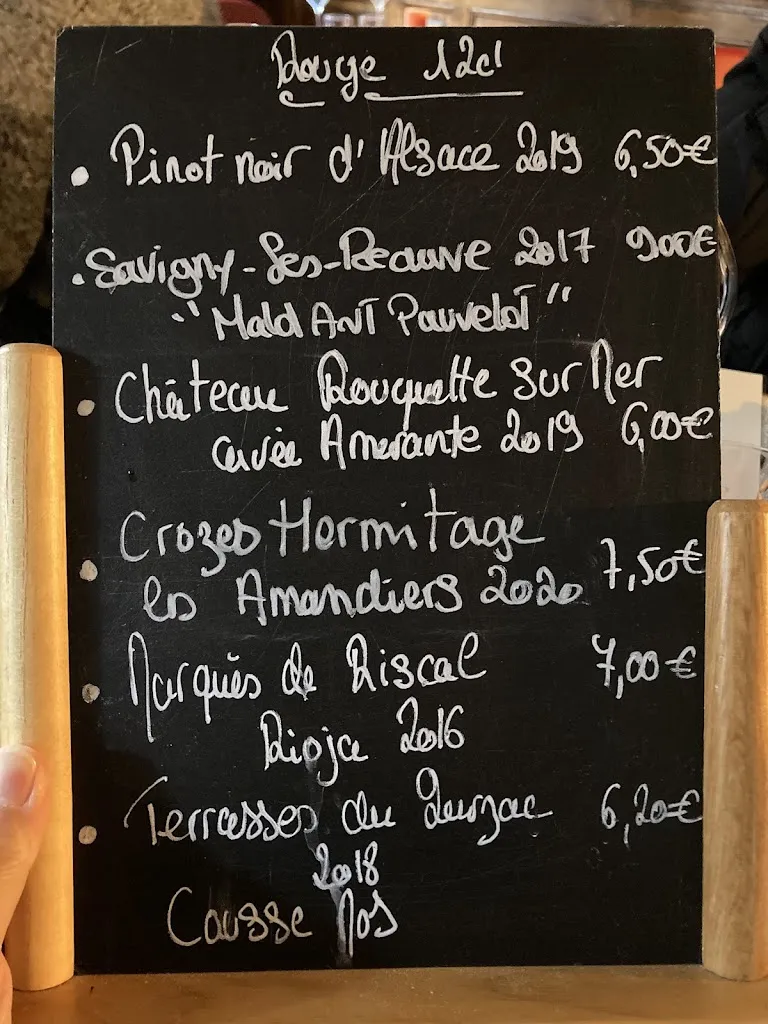 Rouge 12cl
• Pinot noir d'Alsace 2019 6,50€
• Savigny-les-Beaune 2017 9,00€
"Maldant Pauvelot"
• Château Rouquette sur Mer
cuvée Amarante 2019 6,00€
Crozes Hermitage
• les Amandiers 2020 7,50€
• Marquès de Riscal 7,00€
Rioja 2016
• Terrasses du Larzac 6,20€
2018
Causse Nos